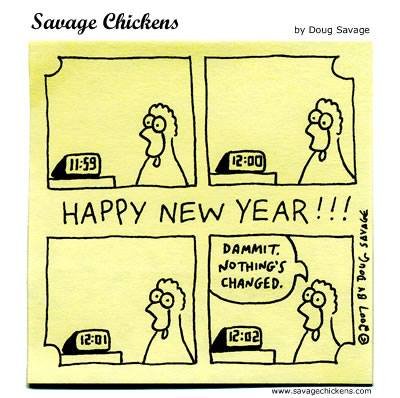 Savage Chickens
by Doug Savage
11:59
12:00
HAPPY NEW YEAR!!!
12:01
DAMMIT.
NOTHING'S
CHANGED.
12:02
© 2007 BY DOUG SAVAGE
www.savagechickens.com